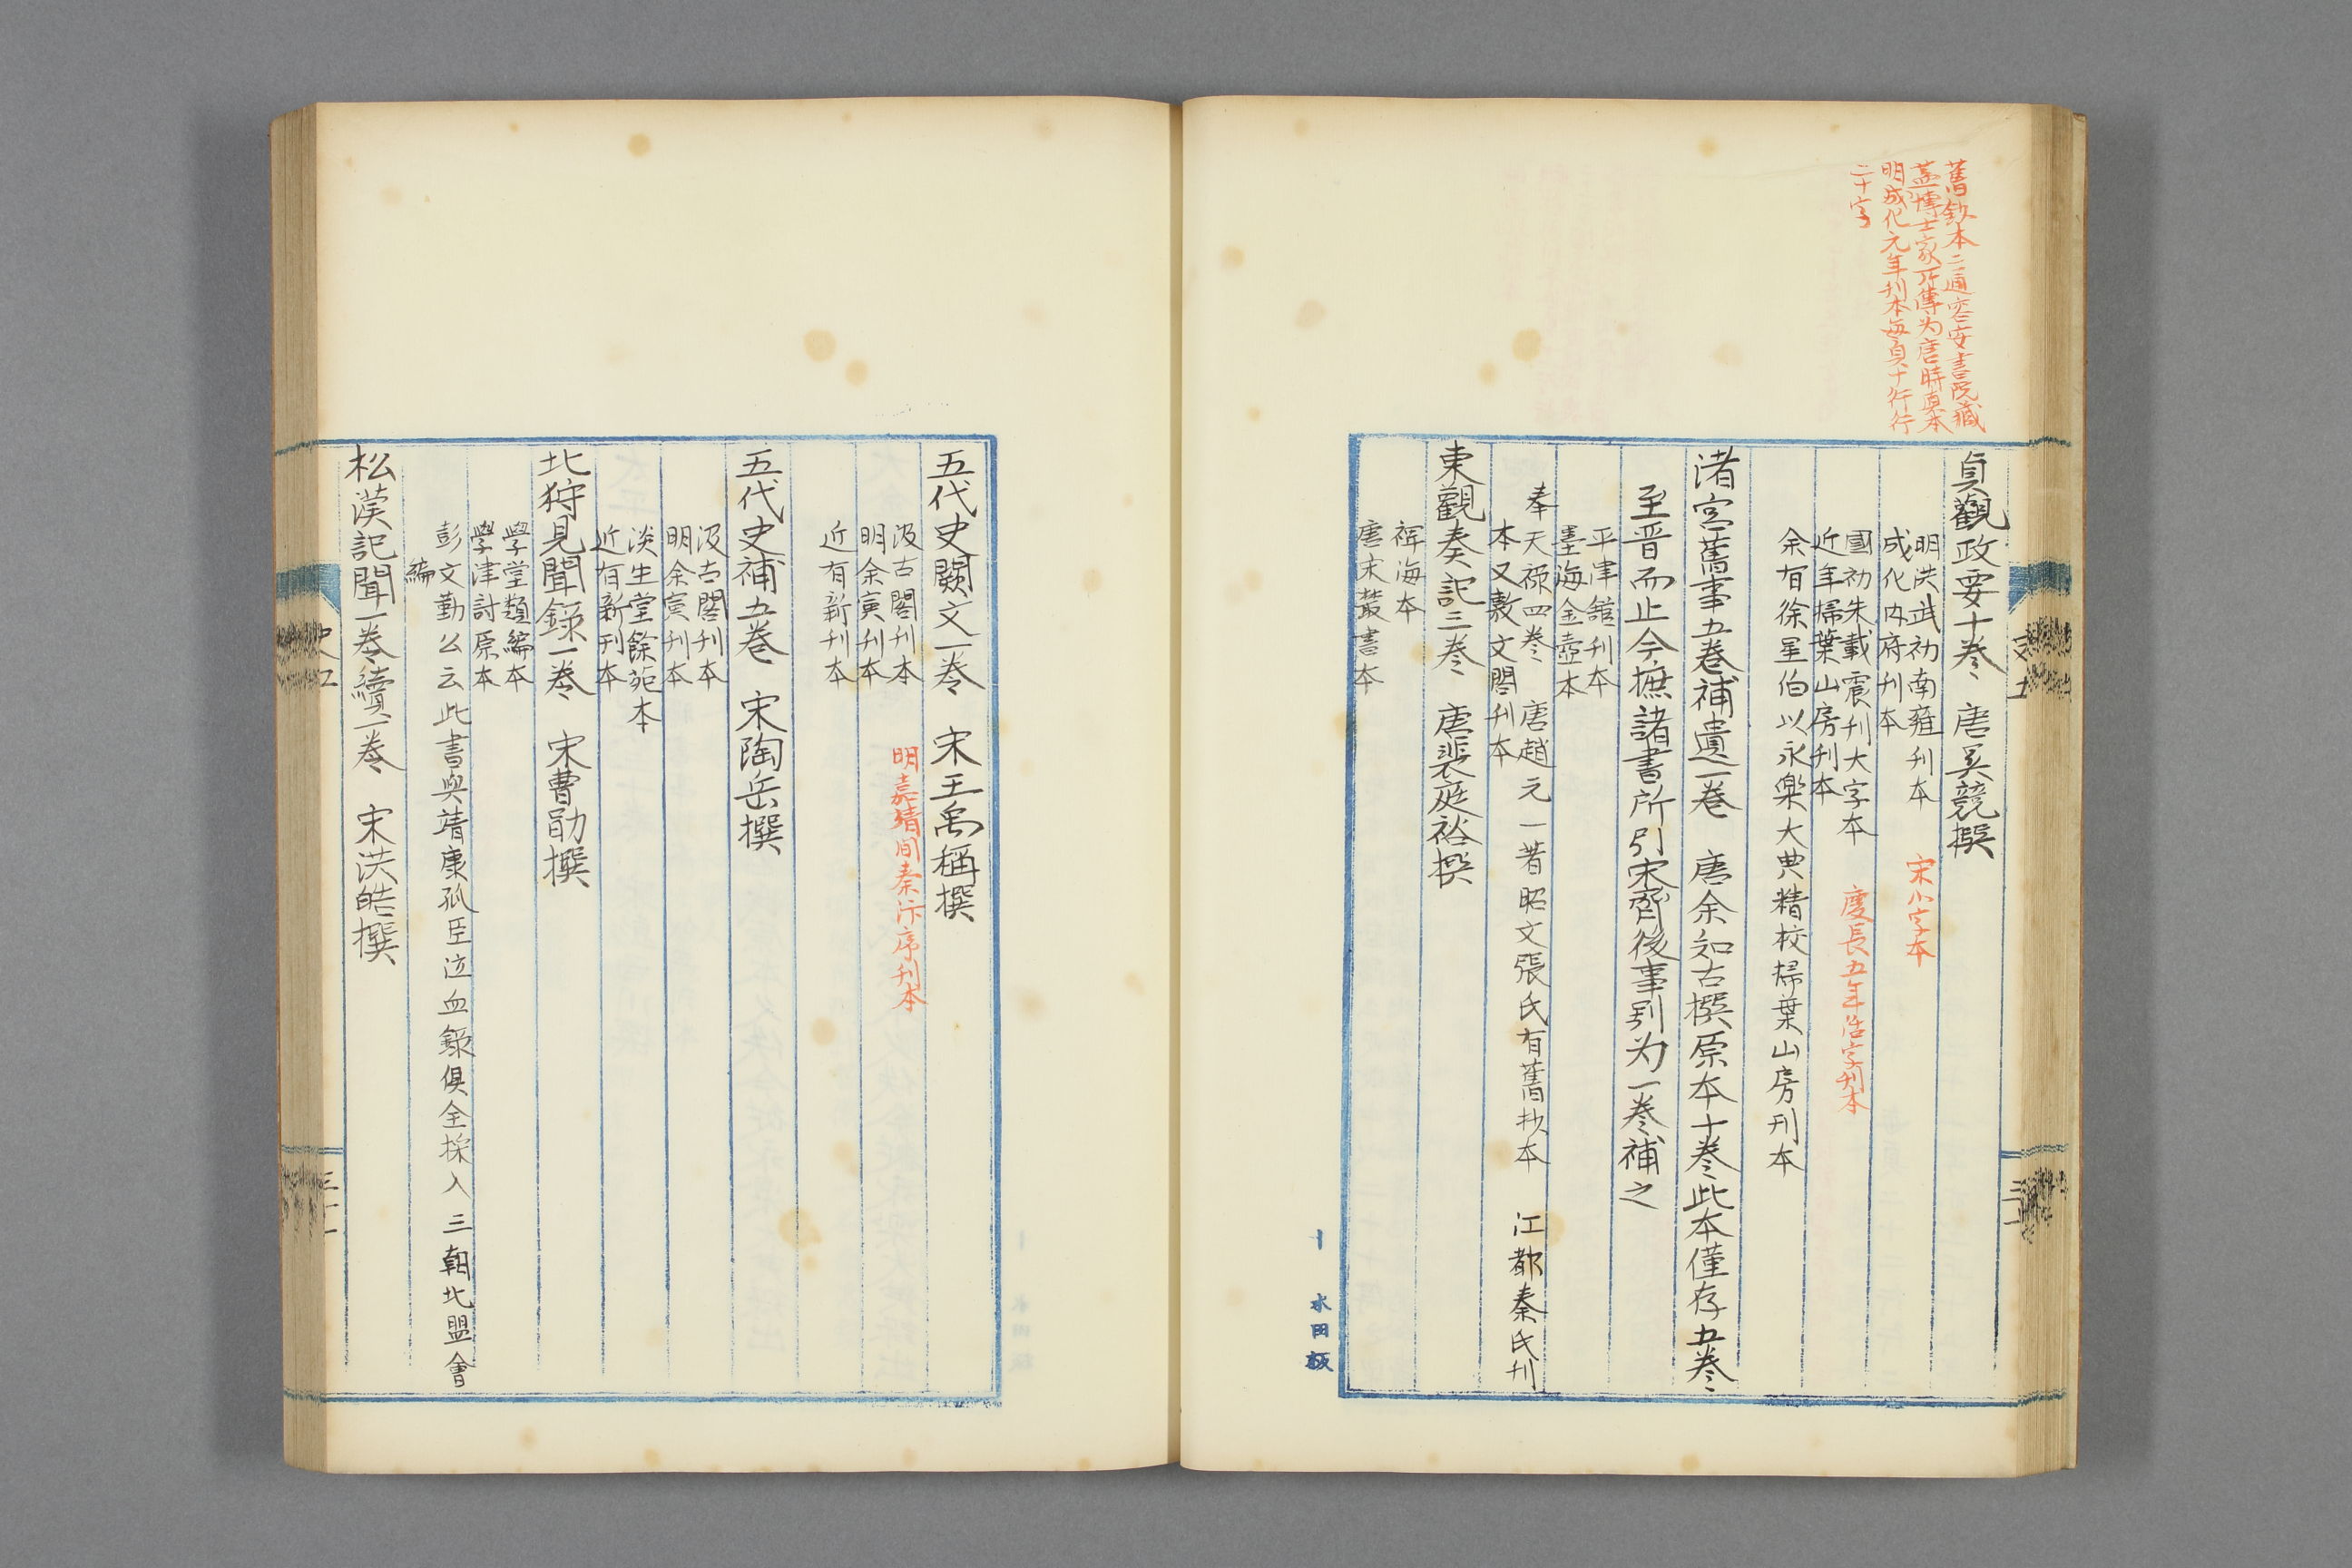 舊鈔本二通容安書院藏
蓋博士家所傳为唐時真本
明成化元年刊本每頁十行行
二十字
貞觀政要十卷　唐吴競撰
明洪武初南雍刊本　宋小字本
成化内府刊本
國初朱載震刊大字本　慶長五年活字刊本
近年掃葉山房刊本
余有徐星伯以永樂大典精校掃葉山房刊本
渚宮舊事五卷補遺一卷　唐余知古撰原本十卷此本僅存五卷
至晋而止今摭諸書所引宋齊後事别为一卷補之
平津館刊本
墨海金壺本
奉天禄四卷　唐趙元一著昭文張氏有舊抄本　江都秦氏刊
本又敷文閣刊本
東觀奏記三卷　唐裴庭裕撰
稗海本
唐宋叢書本
木田板
五代史闕文一卷　宋王禹稱撰
汲古閣刊本　明嘉靖間秦汴序刊本
明余寅刊本
近有新刊本
五代史補五卷　宋陶岳撰
汲古閣刊本
明余寅刊本
淡生堂餘苑本
近有新刊本
北狩見聞錄一卷　宋曹勛撰
學堂類編本
學津討原本
彭文勤公云此書與靖康孤臣泣血錄俱全採入三朝北盟會
編
松漠記聞一卷續一卷　宋洪皓撰